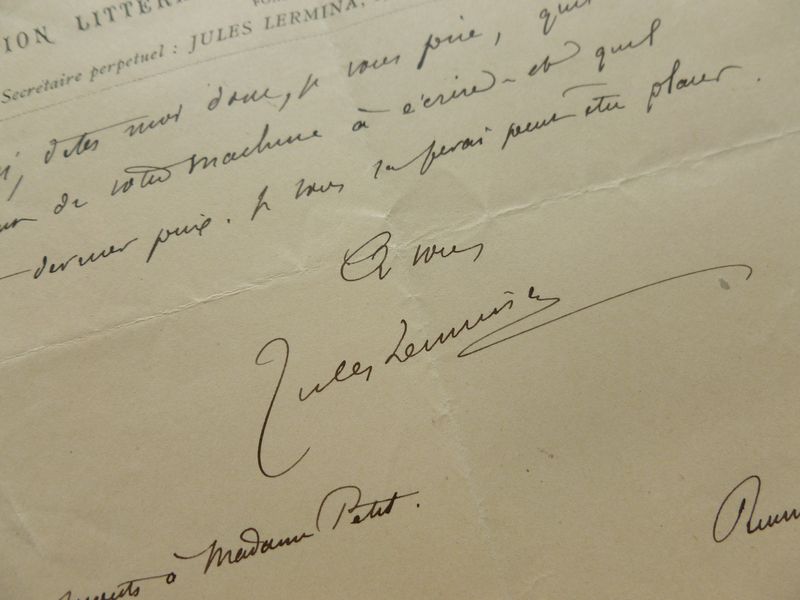 ION LITTÉR
Secrétaire perpétuel : JULES LERMINA,
dites moi donc, je vous prie,
de votre machine à écrire - et quel
dernier prix. Je vous la ferai peut être placer.
A vous
Jules Lermina
à Madame Petit.